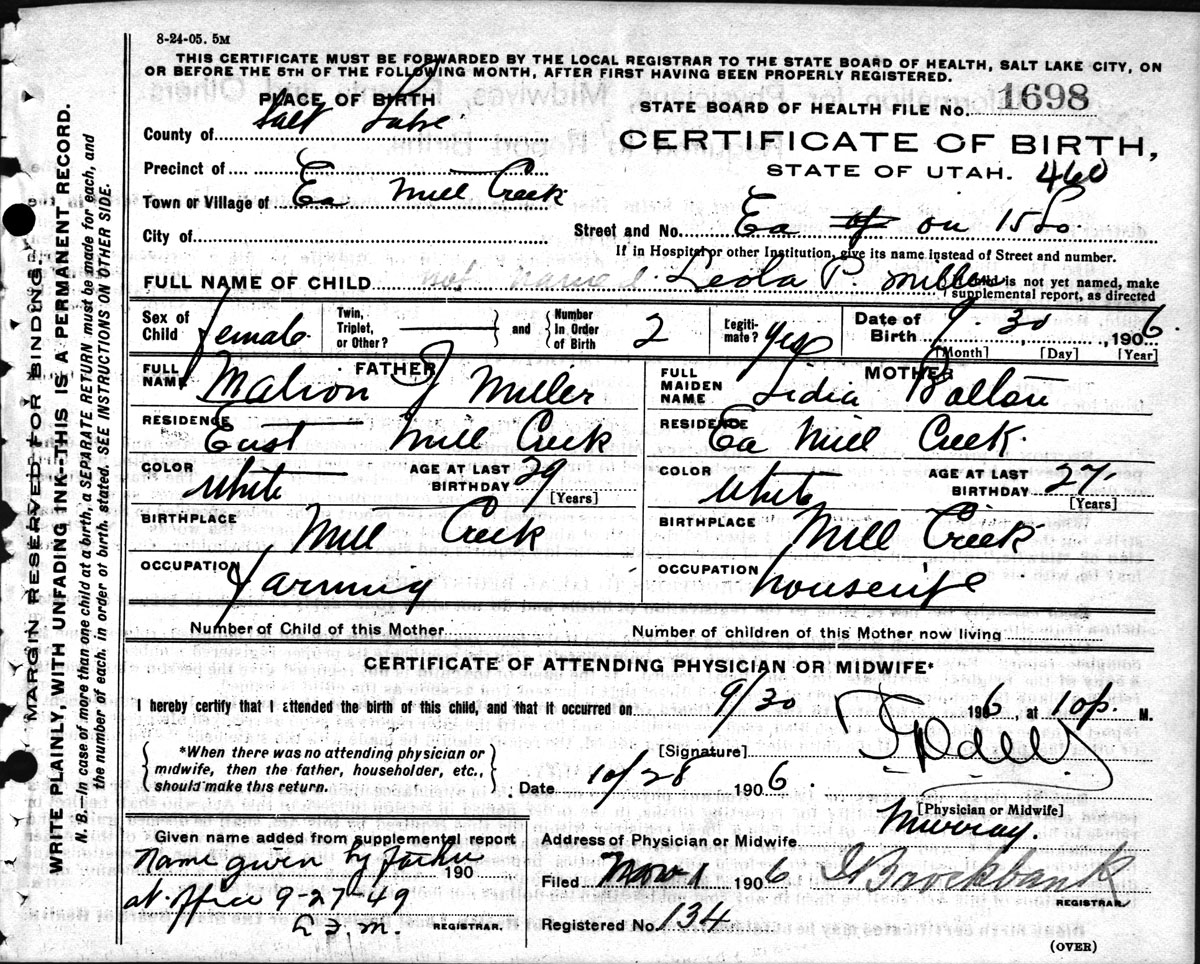 8-24-05. 5M
THIS CERTIFICATE MUST BE FORWARDED BY THE LOCAL REGISTRAR TO THE STATE BOARD OF HEALTH, SALT LAKE CITY, ON
OR BEFORE THE 5TH OF THE FOLLOWING MONTH, AFTER FIRST HAVING BEEN PROPERLY REGISTERED.
PLACE OF BIRTH
STATE BOARD OF HEALTH FILE NO. 1698
County of Salt Lake
CERTIFICATE OF BIRTH,
STATE OF UTAH. 460
Precinct of
Town or Village of Ea Mill Creek
City of
Street and No. Ea of on 15 So
If in Hospital or other Institution, give its name instead of Street and number.
FULL NAME OF CHILD not named Leola P. Miller
child is not yet named, make
supplemental report, as directed
Sex of Child Female
Twin, Triplet, or Other? and Number In Order of Birth 2
Legiti-mate? Yes
Date of Birth 9. 30, 1906.
[Month] [Day] [Year]
FATHER
FULL NAME J Miller
RESIDENCE East Mill Creek
COLOR White AGE AT LAST BIRTHDAY 29 [Years]
BIRTHPLACE Mill Creek
OCCUPATION Farming
MOTHER
FULL MAIDEN NAME Lidia
RESIDENCE Ea Mill Creek.
COLOR White AGE AT LAST BIRTHDAY 27 [Years]
BIRTHPLACE Mill Creek
OCCUPATION housewife
Number of Child of this Mother
Number of children of this Mother now living
CERTIFICATE OF ATTENDING PHYSICIAN OR MIDWIFE*
I hereby certify that I attended the birth of this child, and that it occurred on 9/30 1906, at 10 p. M.
*When there was no attending physician or
midwife, then the father, householder, etc.,
should make this return.
[Signature]
Date 10/28 1906.
[Physician or Midwife]
Given name added from supplemental report
Name given by father 190
at office 9-27-49
L.F.M. REGISTRAR.
Address of Physician or Midwife Murray.
Filed Nov 1 1906 Brockbank
REGISTRAR
Registered No. 134
(OVER)
MARGIN RESERVED FOR BINDING.
WRITE PLAINLY, WITH UNFADING INK--THIS IS A PERMANENT RECORD.
N. B.--In case of more than one child at a birth, a SEPARATE RETURN must be made for each, and
the number of each, in order of birth, stated. SEE INSTRUCTIONS ON OTHER SIDE.